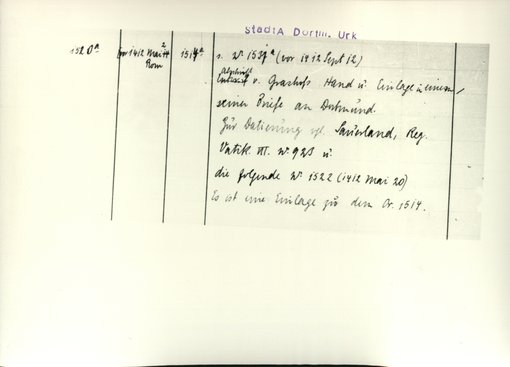 StadtA Dortm. Urk
1520a vor 1412 Mai 2 1514a s. No 1539a (vor 1412 Sept 12)
Rom Abschrift v. Grashofs Hand u. Einlage in einem
seiner Briefe an Dortmund.
Zur Datierung vgl. Sauerland, Reg.
Vatik. VII. No 923 u.
die folgende No 1522 (1412 Mai 20)
Es ist eine Einlage zu dem Or. 1514.